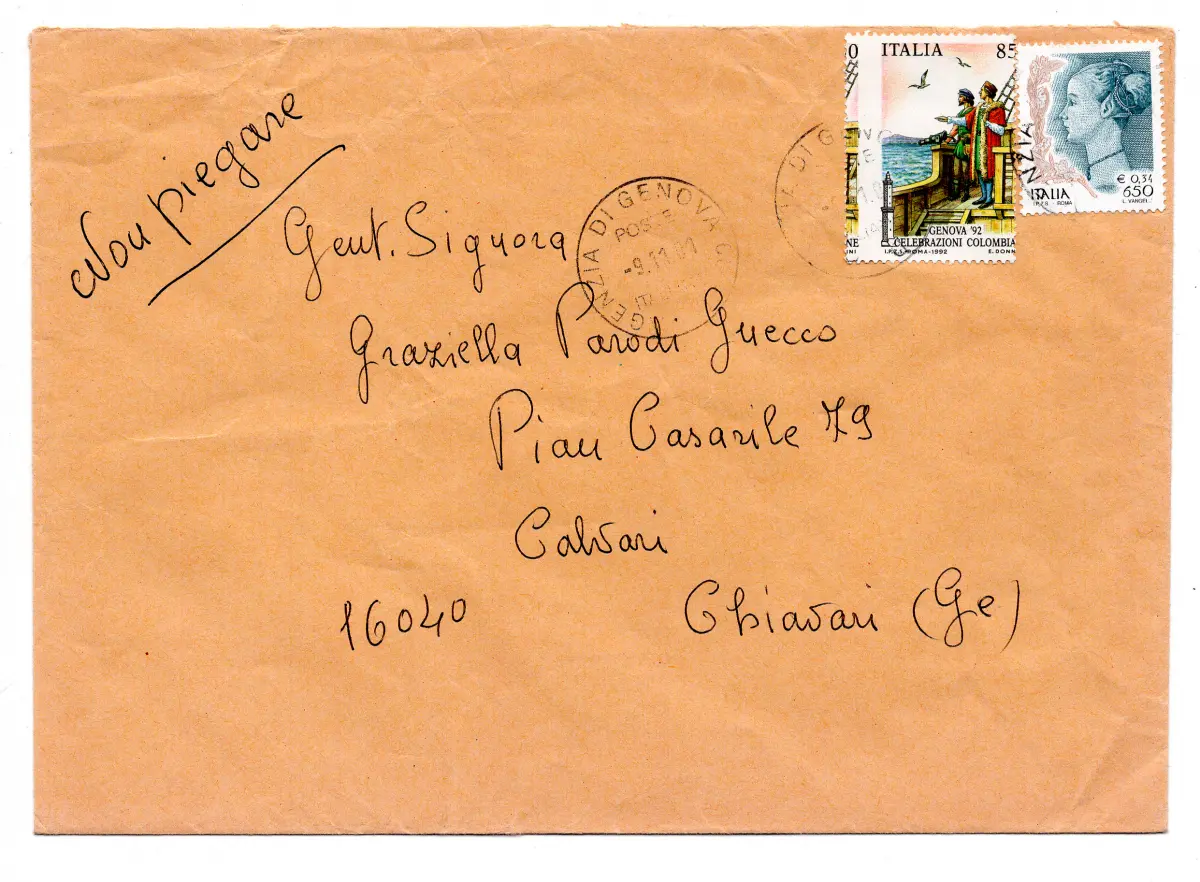 Non piegare
Gent. Signora
Graziella Parodi Guecco
Pian Casarile 79
Calvari
16040 Chiavari (Ge)
ITALIA 85
GENOVA '92
CELEBRAZIONI COLOMBIA
I.P.Z.S. ROMA-1992 E. DONN
€ 0,34
650
ITALIA
I.P.Z.S. - ROMA L. VANGEL
GENZIA DI GENOVA
POSTE
-9.11.01
DI GENO
NZIA